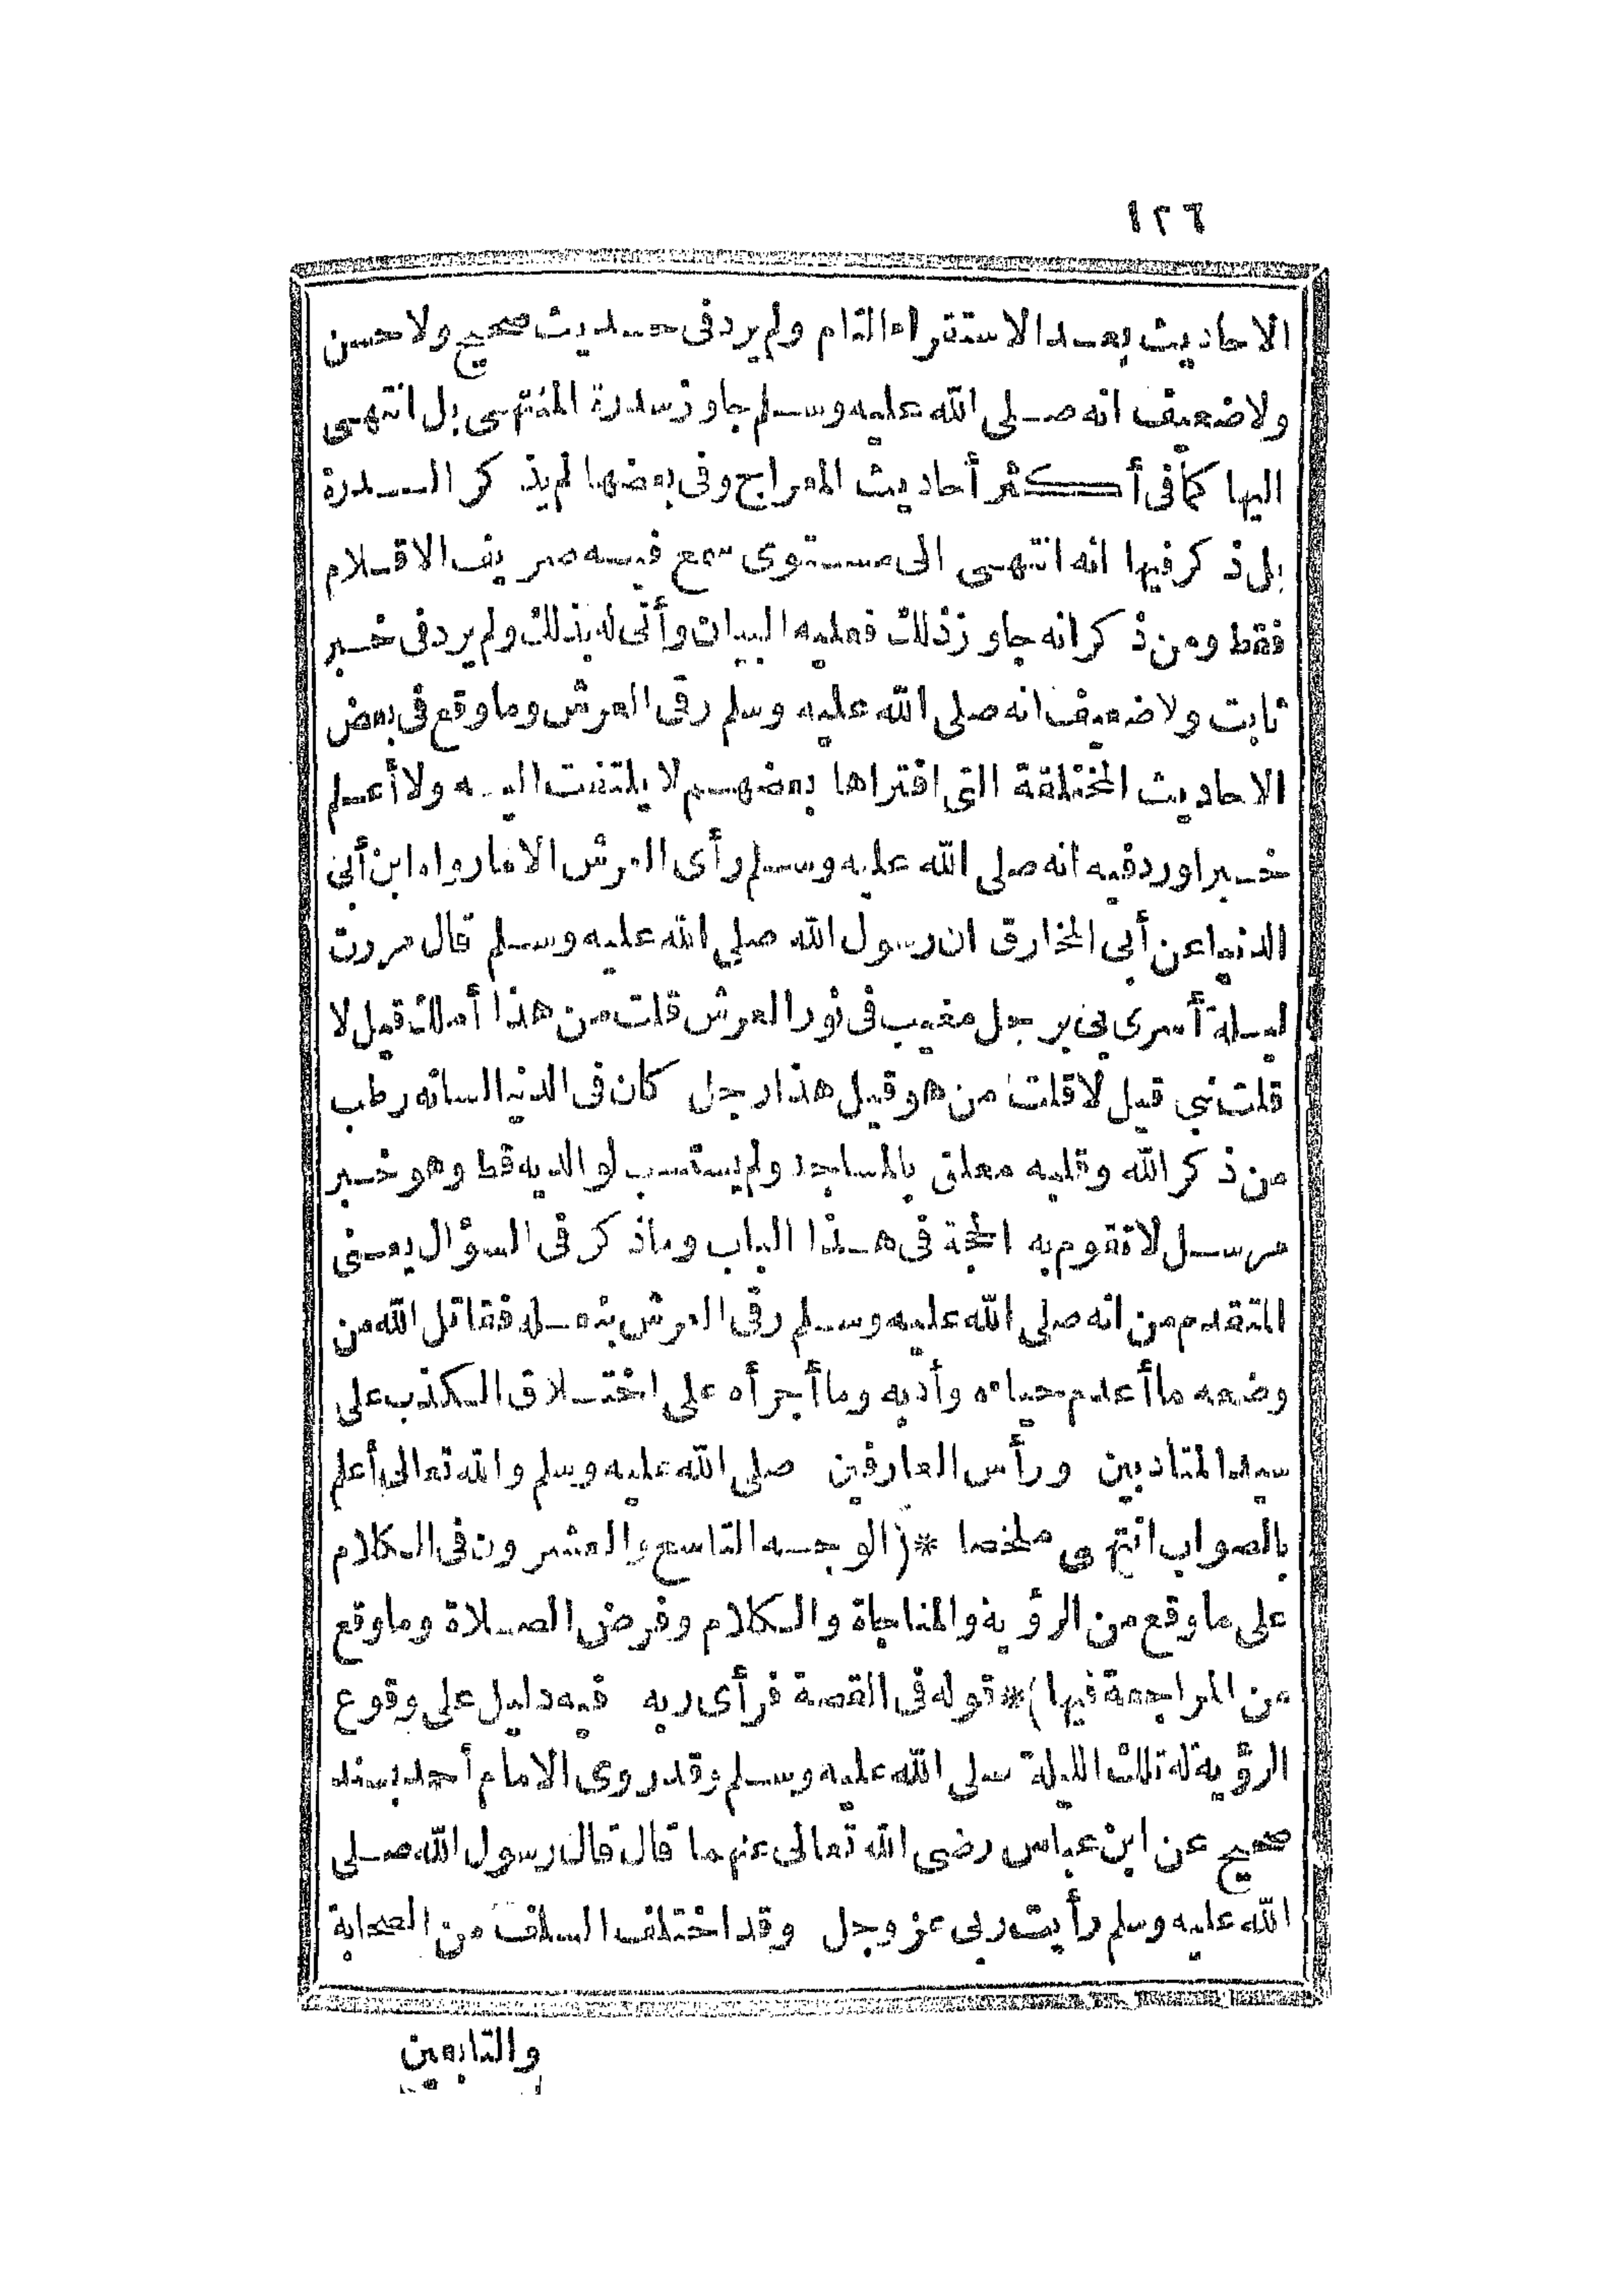 ١٢٦
الاحاديث بعد الاستقراء التام ولم يرد فى حديث صحيح ولا حسن
ولا ضعيف انه صلى الله عليه وسلم جاوز سدرة المنتهى بل انتهى
اليها كما فى أكثر أحاديث المعراج وفى بعضها لم يذكر السدرة
بل ذكر فيها انه انتهى الى مستوى سمع فيه صريف الاقلام
فقط ومن ذكر انه جاوز ذلك فعليه البيان وأنى له بذلك ولم يرد فى خبر
ثابت ولا ضعيف انه صلى الله عليه وسلم رقى العرش وما وقع فى بعض
الاحاديث المختلقة التى افتراها بعضهم لا يلتفت اليه ولا أعلم
خبرا ورد فيه انه صلى الله عليه وسلم رأى العرش الا ما رواه ابن أبى
الدنيا عن أبى المخارق ان رسول الله صلى الله عليه وسلم قال مررت
ليلة أسرى بى برجل مغيب فى نور العرش قلت من هذا أملك قيل لا
قلت نبى قيل لا قلت من هو قيل هذا رجل كان فى الدنيا لسانه رطب
من ذكر الله وقلبه معلق بالمساجد ولم يستسب لوالديه قط وهو خبر
مرسل لا تقوم به الحجة فى هذا الباب وما ذكر فى السؤال يعنى
المتقدم من انه صلى الله عليه وسلم رقى العرش بنعله فقاتل الله من
وضعه ما أعدم حياءه وأدبه وما أجرأه على اختلاق الكذب على
سيد المتأدبين ورأس العارفين صلى الله عليه وسلم والله تعالى أعلم
بالصواب انتهى ملخصا *(الوجه التاسع والعشرون فى الكلام
على ما وقع من الرؤية والمناجاة والكلام وفرض الصلاة وما وقع
من المراجعة فيها)* قوله فى القصة فرأى ربه فيه دليل على وقوع
الرؤية له تلك الليلة صلى الله عليه وسلم وقد روى الامام أحمد بسند
صحيح عن ابن عباس رضى الله تعالى عنهما قال قال رسول الله صلى
الله عليه وسلم رأيت ربى عز وجل وقد اختلف السلف من الصحابة
والتابعين